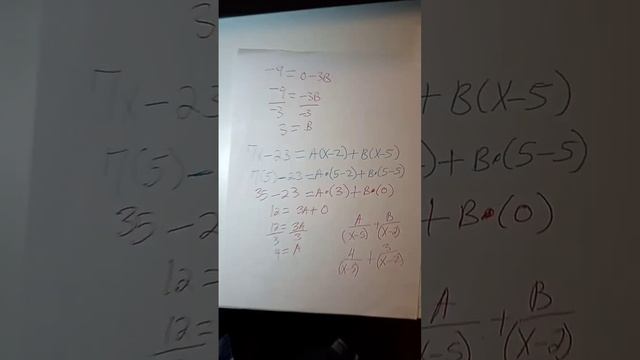 -9 = 0-3B
-9/-3 = -3B/-3
3 = B
7x-23 = A(x-2)+B(x-5)
7(5)-23 = A•(5-2)+B•(5-5)
35-23 = A•(3)+B•(0)
12 = 3A+0
12/3 = 3A/3
4 = A
A/(x-5) + B/(x-2)
4/(x-5) + 3/(x-2)